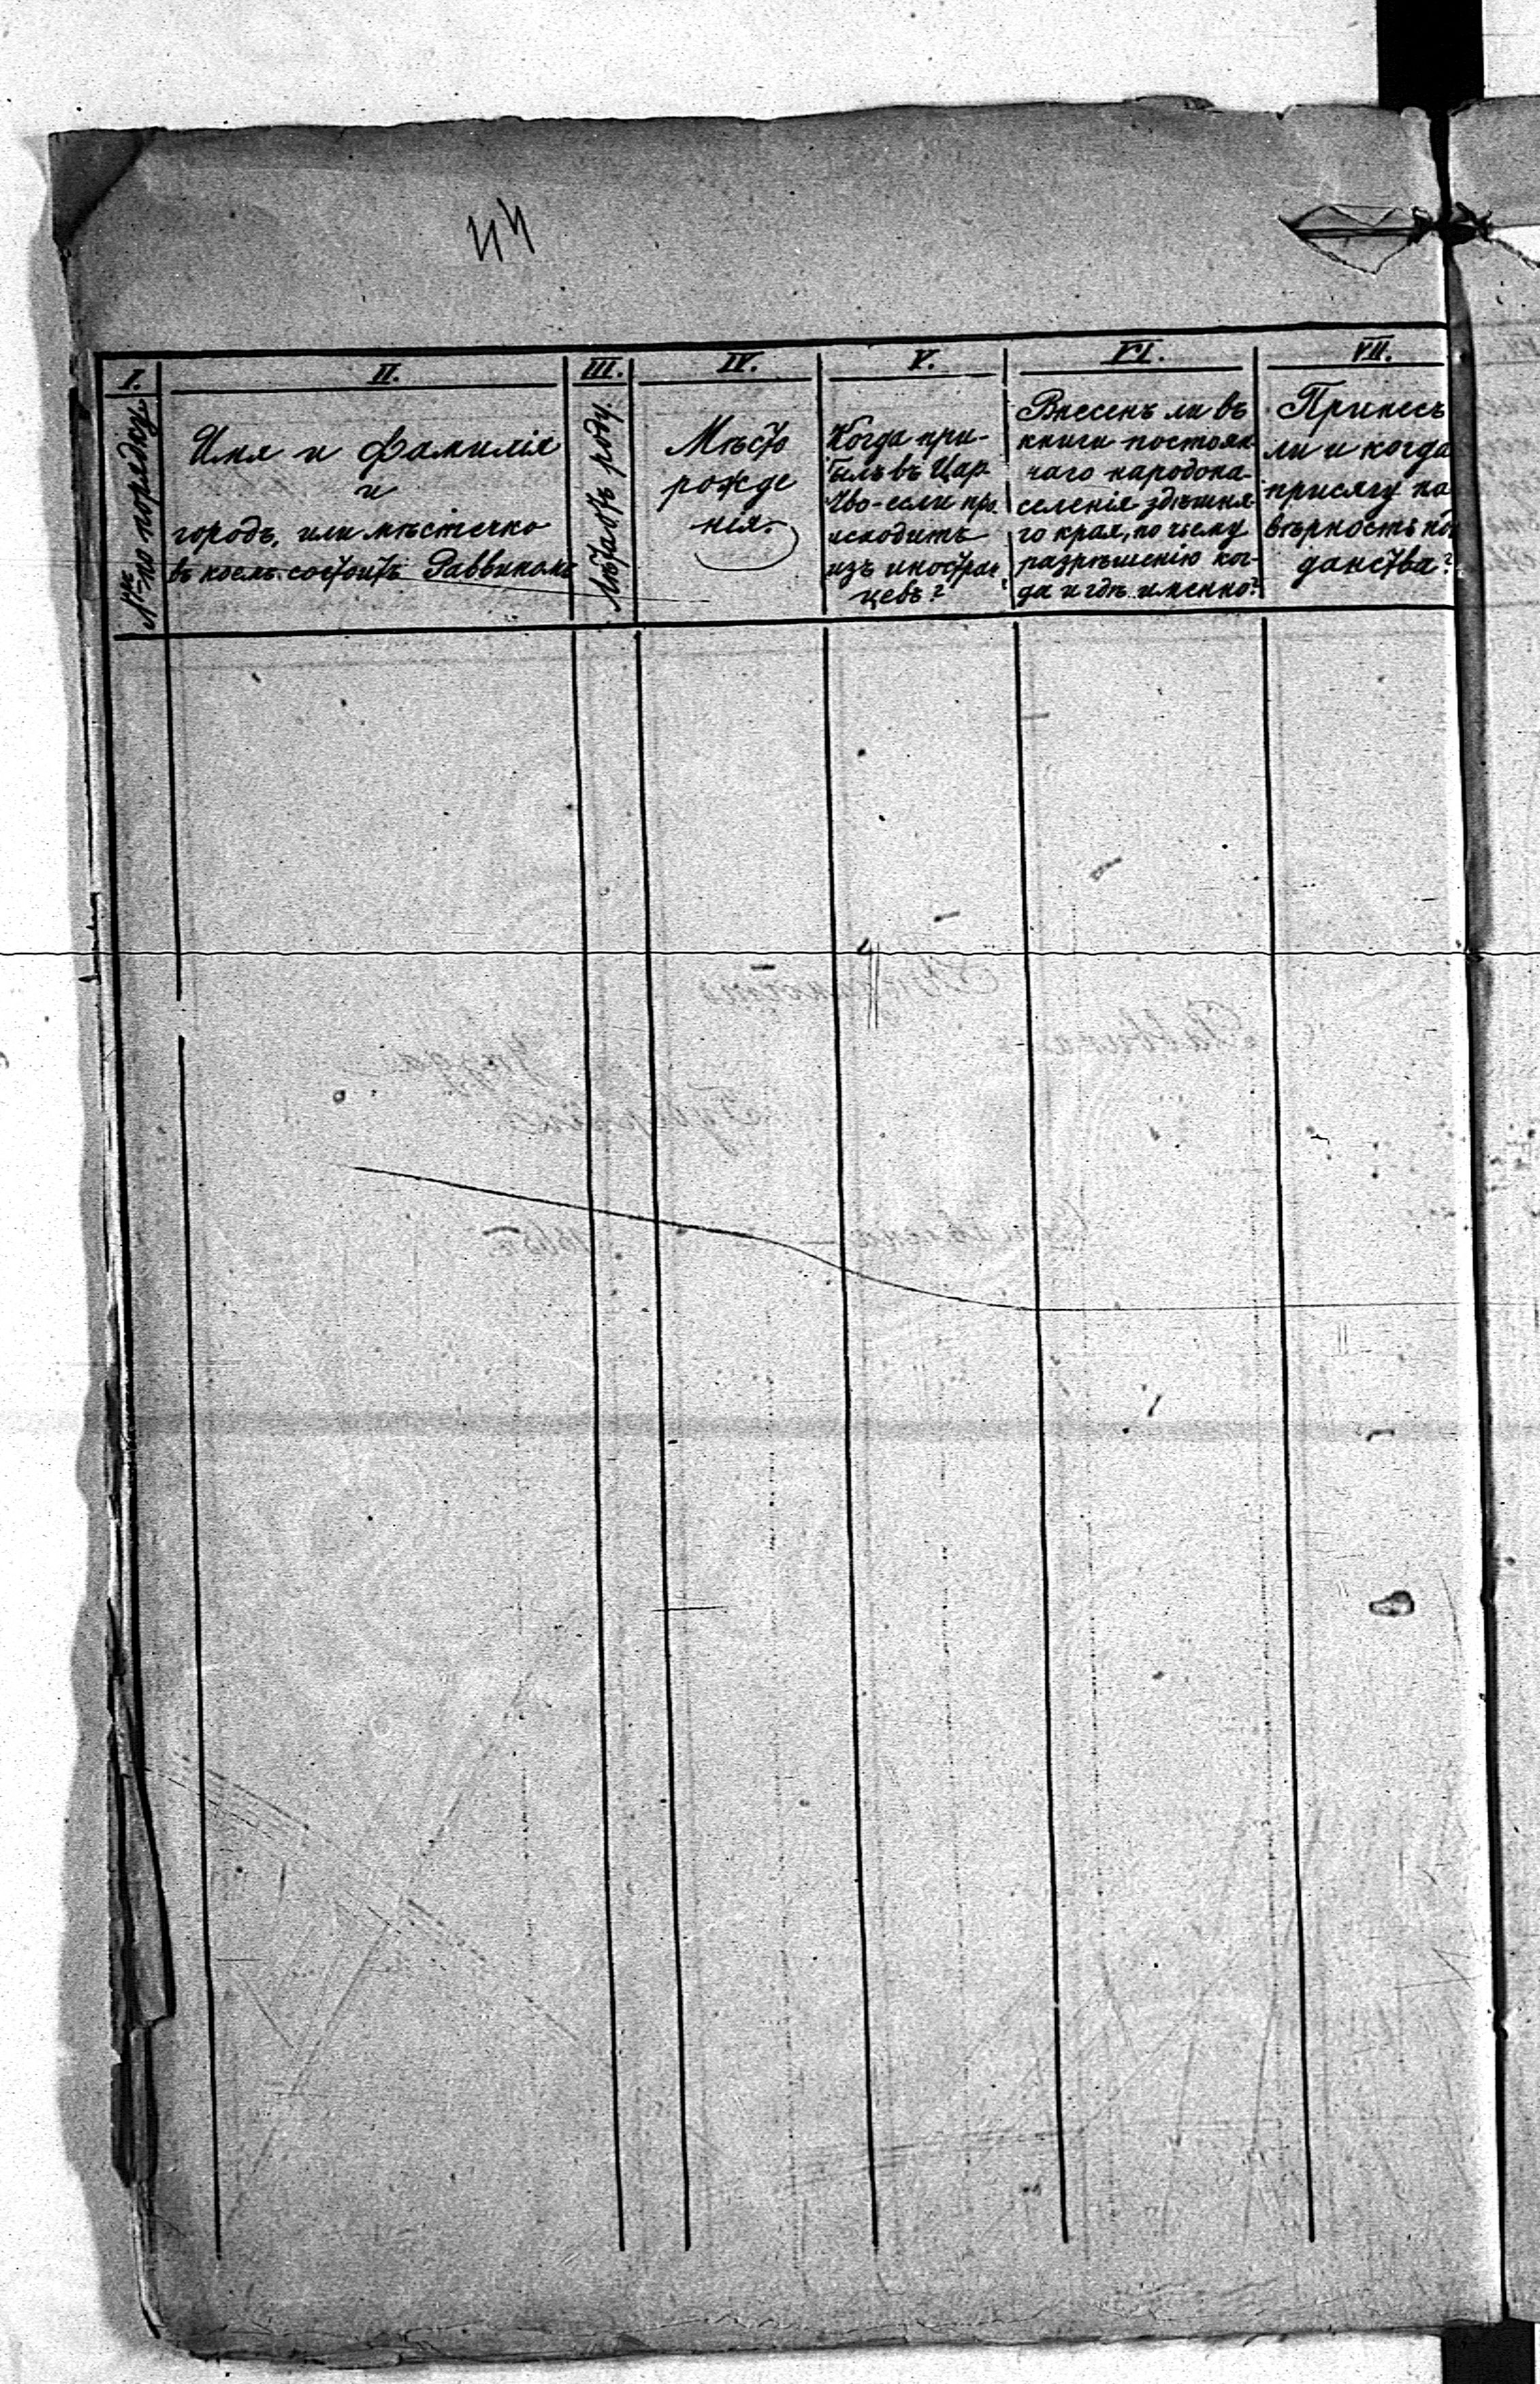 44
I.
№№ по порядку.
II.
Имя и фамилія
и
городъ, или мѣстечко
въ коемъ состоитъ Раввиномъ
III.
Лѣта отъ роду.
IV.
Мѣсто
рожде
нія.
V.
Когда при-
былъ въ Цар
ство-если про
исходитъ
изъ иностран
цевъ?
VI.
Внесенъ ли въ
книги постоян
наго народона-
селенія здѣшня
го края, по чьему
разрѣшенію ко-
гда и гдѣ именно?
VII.
Принесъ
ли и когда
присягу на
вѣрность по
данства?